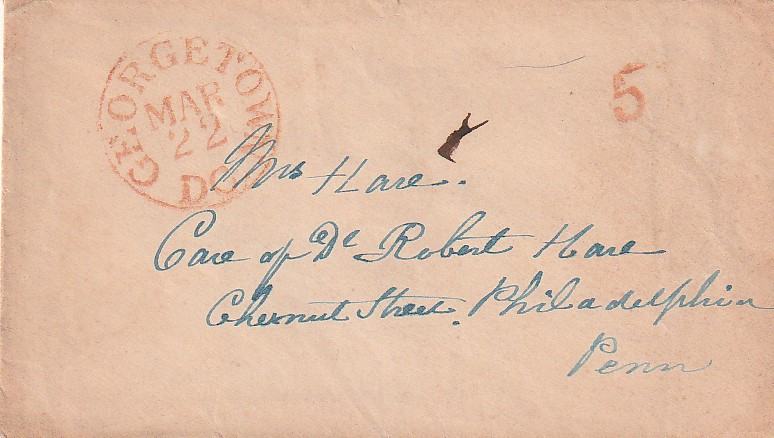 GEORGETOWN DC
MAR
22
5
Mrs Hare.
Care of Dr Robert Hare
Chesnut Street. Philadelphia
Penn